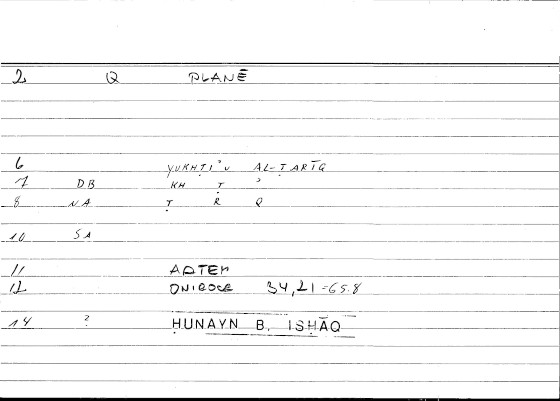 2 Q PLANĒ
6 YUKHṬI'U AL-ṬARĪQ
7 DB KH Ṭ '
8 NA Ṭ R Q
10 SA
11 ARTEM
12 ONIROCR 34,21 = 65.8
14 ? ḤUNAYN B. ISḤĀQ